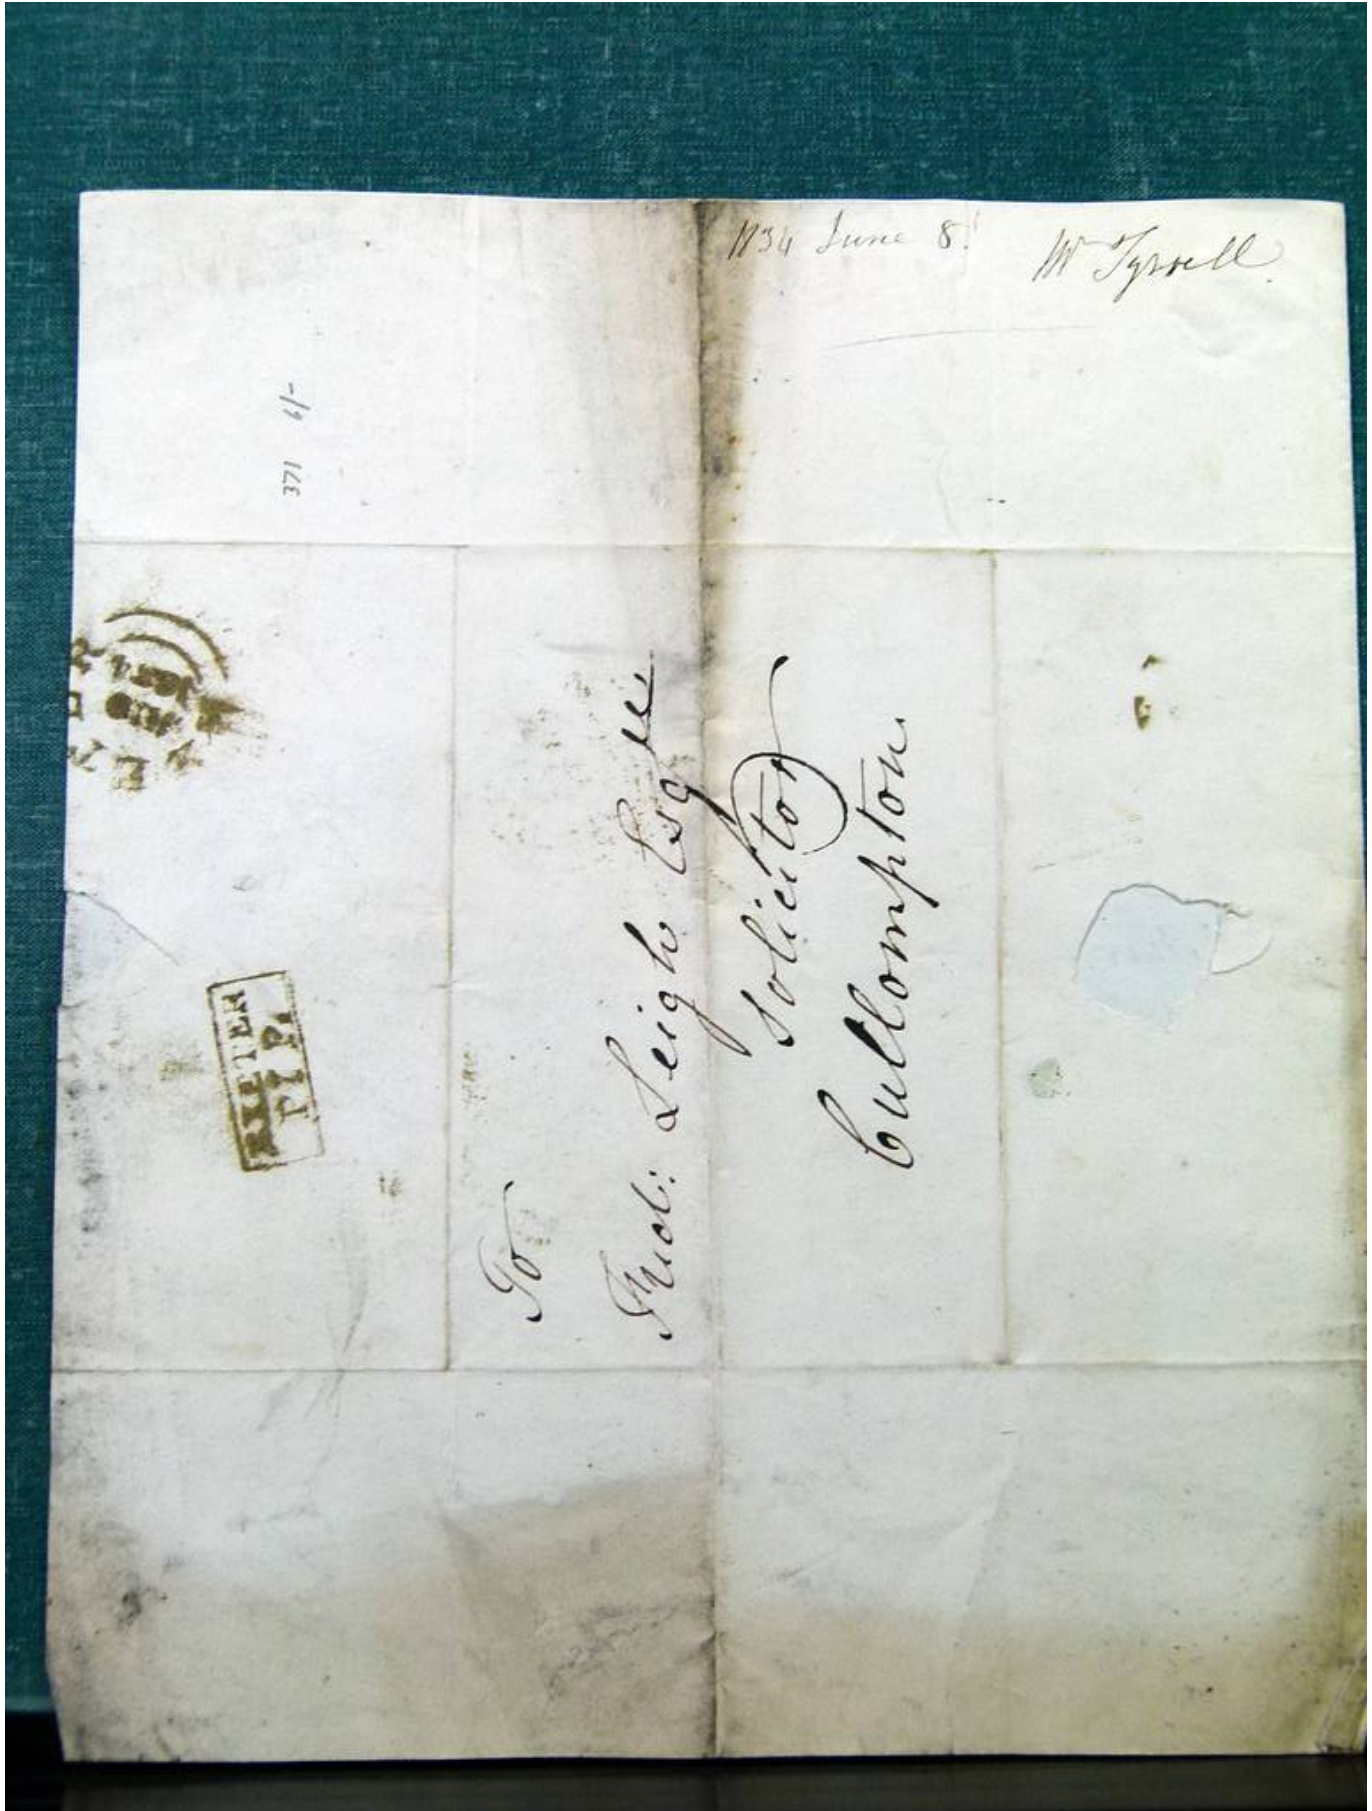 1834 June 8.
Mr Tyrrell
371 6/-
EXETER
EXETER
P1 P.
To
Fred: Leigh Esqre
Solicitor
Cullompton